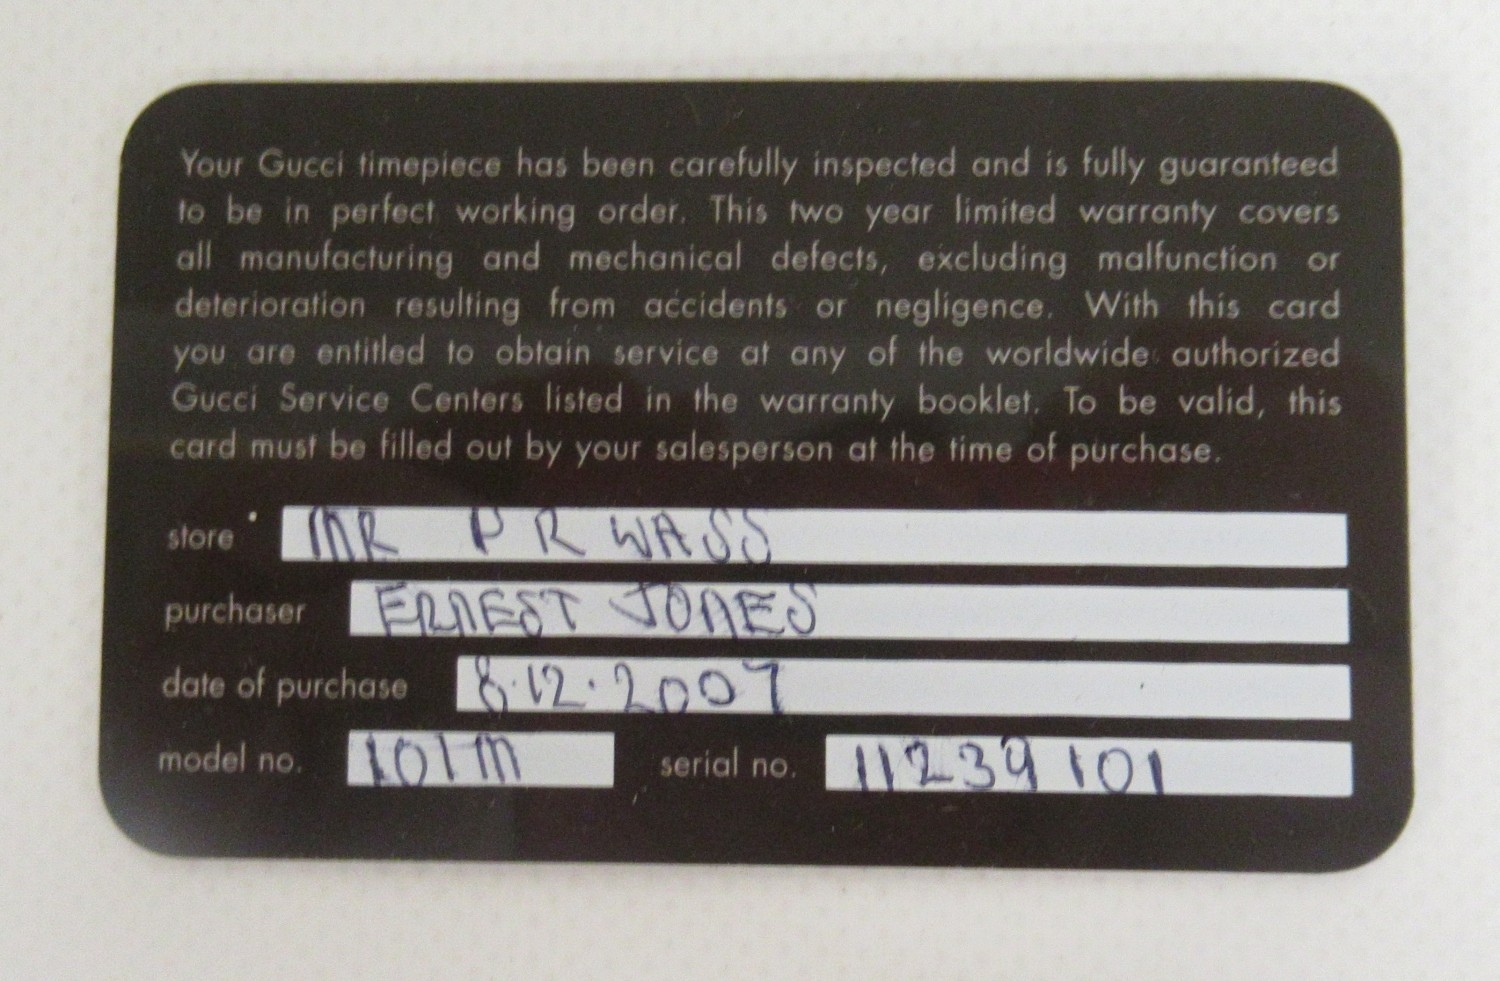 Your Gucci timepiece has been carefully inspected and is fully guaranteed
to be in perfect working order. This two year limited warranty covers
all manufacturing and mechanical defects, excluding malfunction or
deterioration resulting from accidents or negligence. With this card
you are entitled to obtain service at any of the worldwide authorized
Gucci Service Centers listed in the warranty booklet. To be valid, this
card must be filled out by your salesperson at the time of purchase.
store MR P R WASS
purchaser ERNEST JONES
date of purchase 8.12.2007
model no. 101M serial no. 11239101